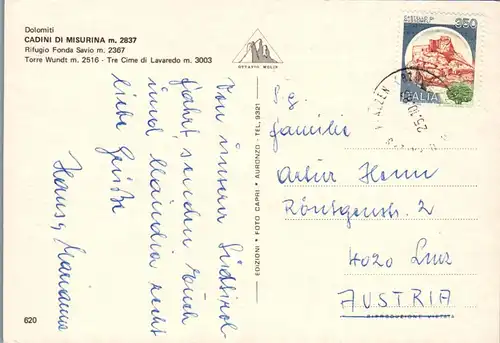 Dolomiti
CADINI DI MISURINA m. 2837
Rifugio Fonda Savio m. 2367
Torre Wundt m. 2516 - Tre Cime di Lavaredo m. 3003
OTTAVIO MOLIN
350
ITALIA
Von unserer Südtirol-
fahrt senden Euch
und Claudia recht
liebe Grüße
Hansi, Marianne
EDIZIONI • FOTO CAPRI • AURONZO - TEL. 9321
Familie
Artur Henn
Röntgenstr. 2
4020 Linz
AUSTRIA
RIPRODUZIONE VIETATA
620